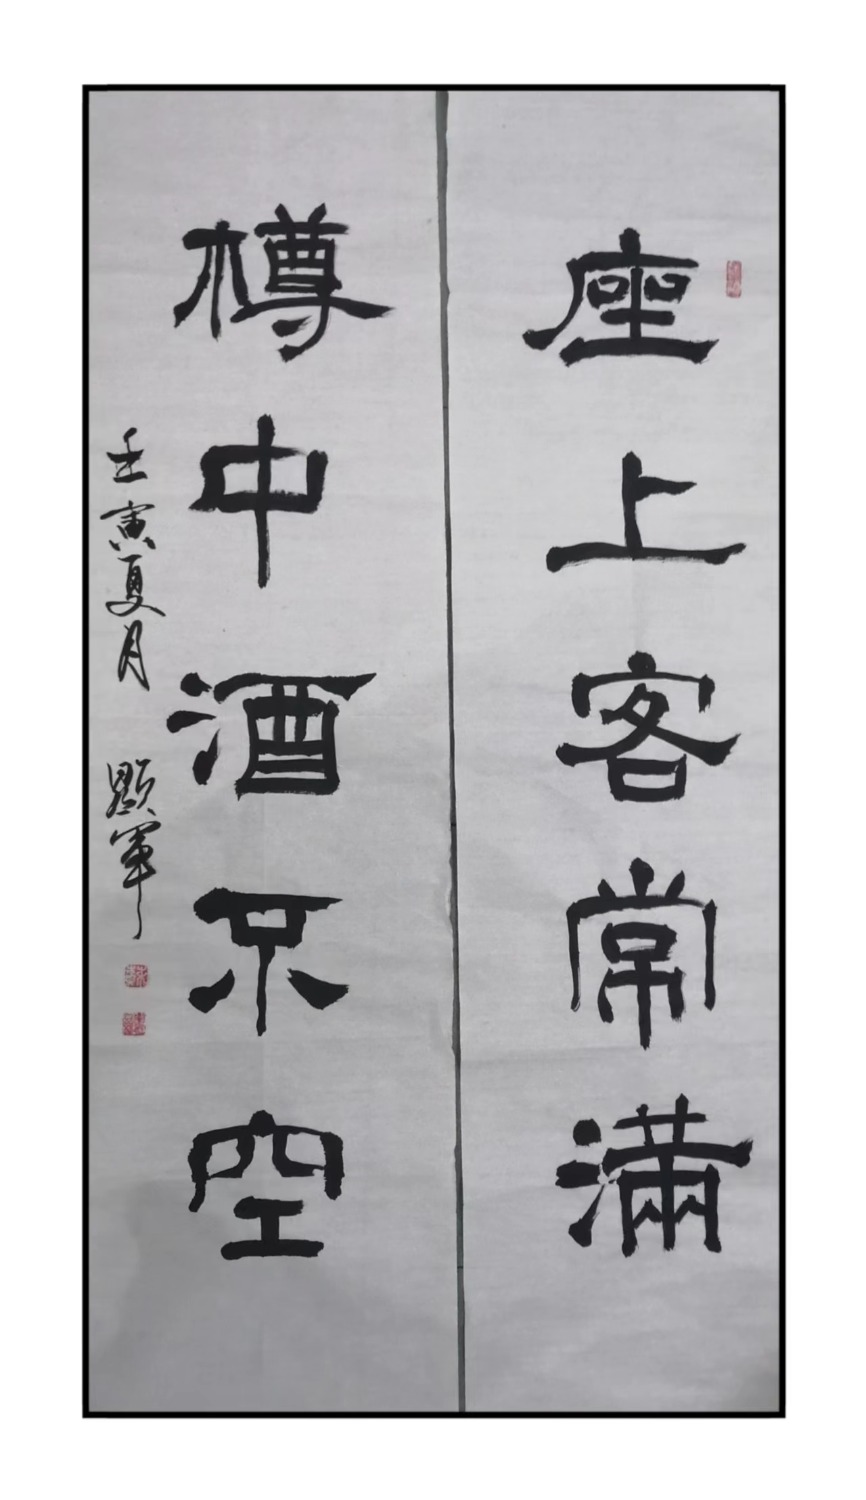 座上客常滿
樽中酒不空
壬寅夏月 顯軍